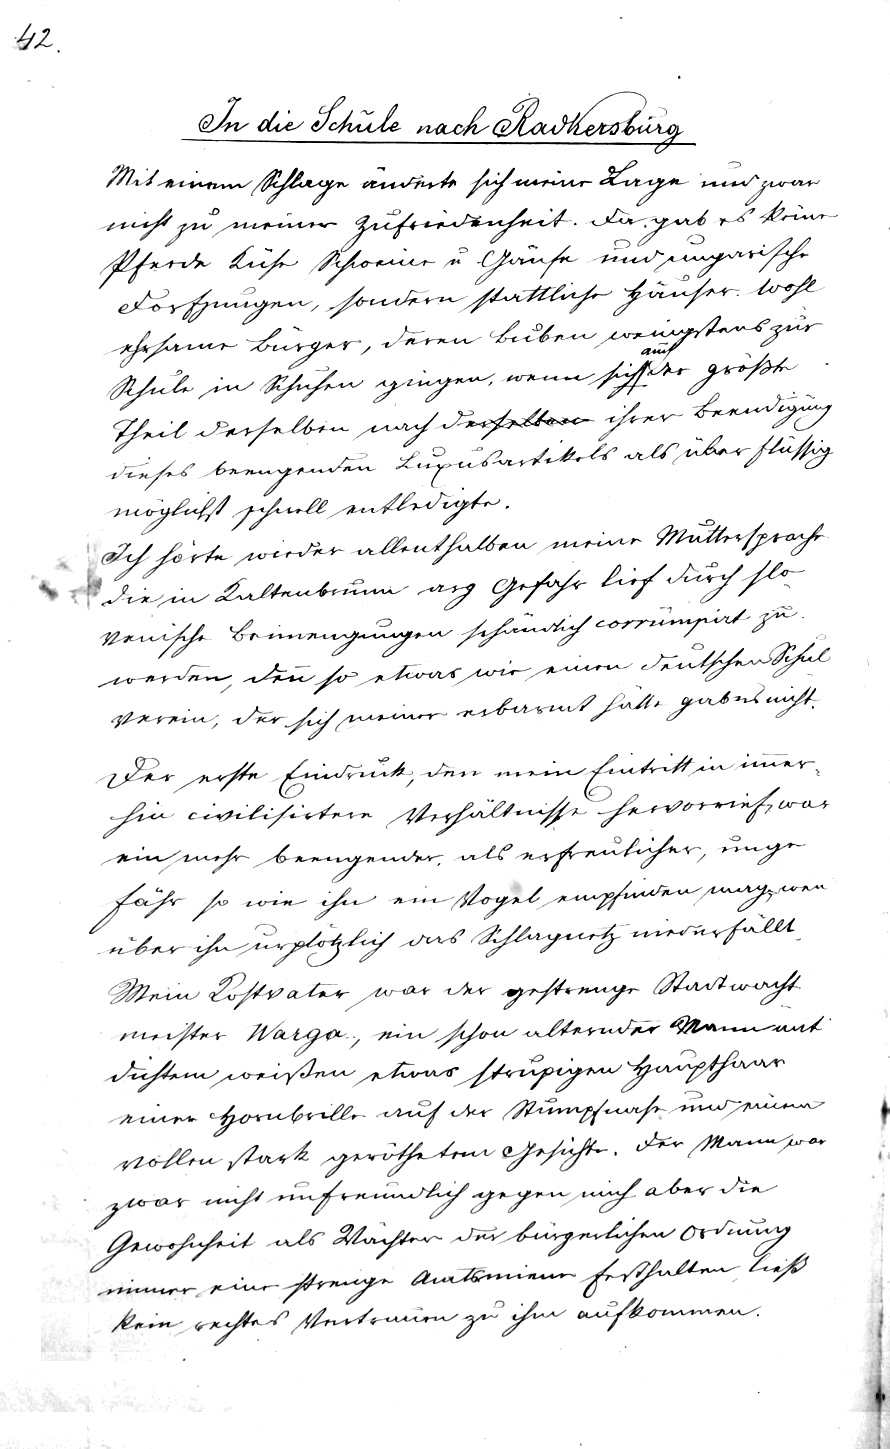 42.
In die Schule nach Radkersburg
Mit einem Schlage änderte sich meine Lage und zwar
nicht zu meiner Zufriedenheit. Da gab es keine
Pferde Kühe Schweine u Gänse und ungarische
sondern stattliche Häuser. Wohl
ehrsame Bürger, deren Buben wenigstens zur
Schule in Schuhen gingen, wenn sich auch der größte
Theil derselben nach derselben ihrer Beendigung
dieses beengenden Luxusartikels als überflüssig
möglichst schnell entledigte.
Ich hörte wieder allenthalben meine Muttersprache
die in Kaltenbrunn arg Gefahr lief durch slo
venische Beimengungen schändlich corrumpirt zu
werden, den̄ so etwas wie einen deutschen Schul
verein, der sich meiner erbarmt hätte gab es nicht.
Der erste Eindruck, den mein Eintritt in im̄er-
hin civilisirtere Verhältnisse hervorrief, war
ein mehr beengender, als erfreulicher, unge
fähr so wie ihn ein Vogel empfinden mag, wen̄
über ihn urplötzlich das Schlagnetz niederfällt.
Mein Kostvater war der gestrenge Stadtwacht
meister Warga, ein schon alternder Mann mit
dichtem weißen etwas strupigen Haupthaar
einer Hornbrille auf der Stumpfnase und einem
vollen stark gerötheten Gesichte. Der Mann war
zwar nicht unfreundlich gegen mich aber die
Gewohnheit als Wächter der bürgerlichen Ordnung
immer eine strenge Amtsmiene festhalten, ließ
kein rechtes Vertrauen zu ihm aufkommen.